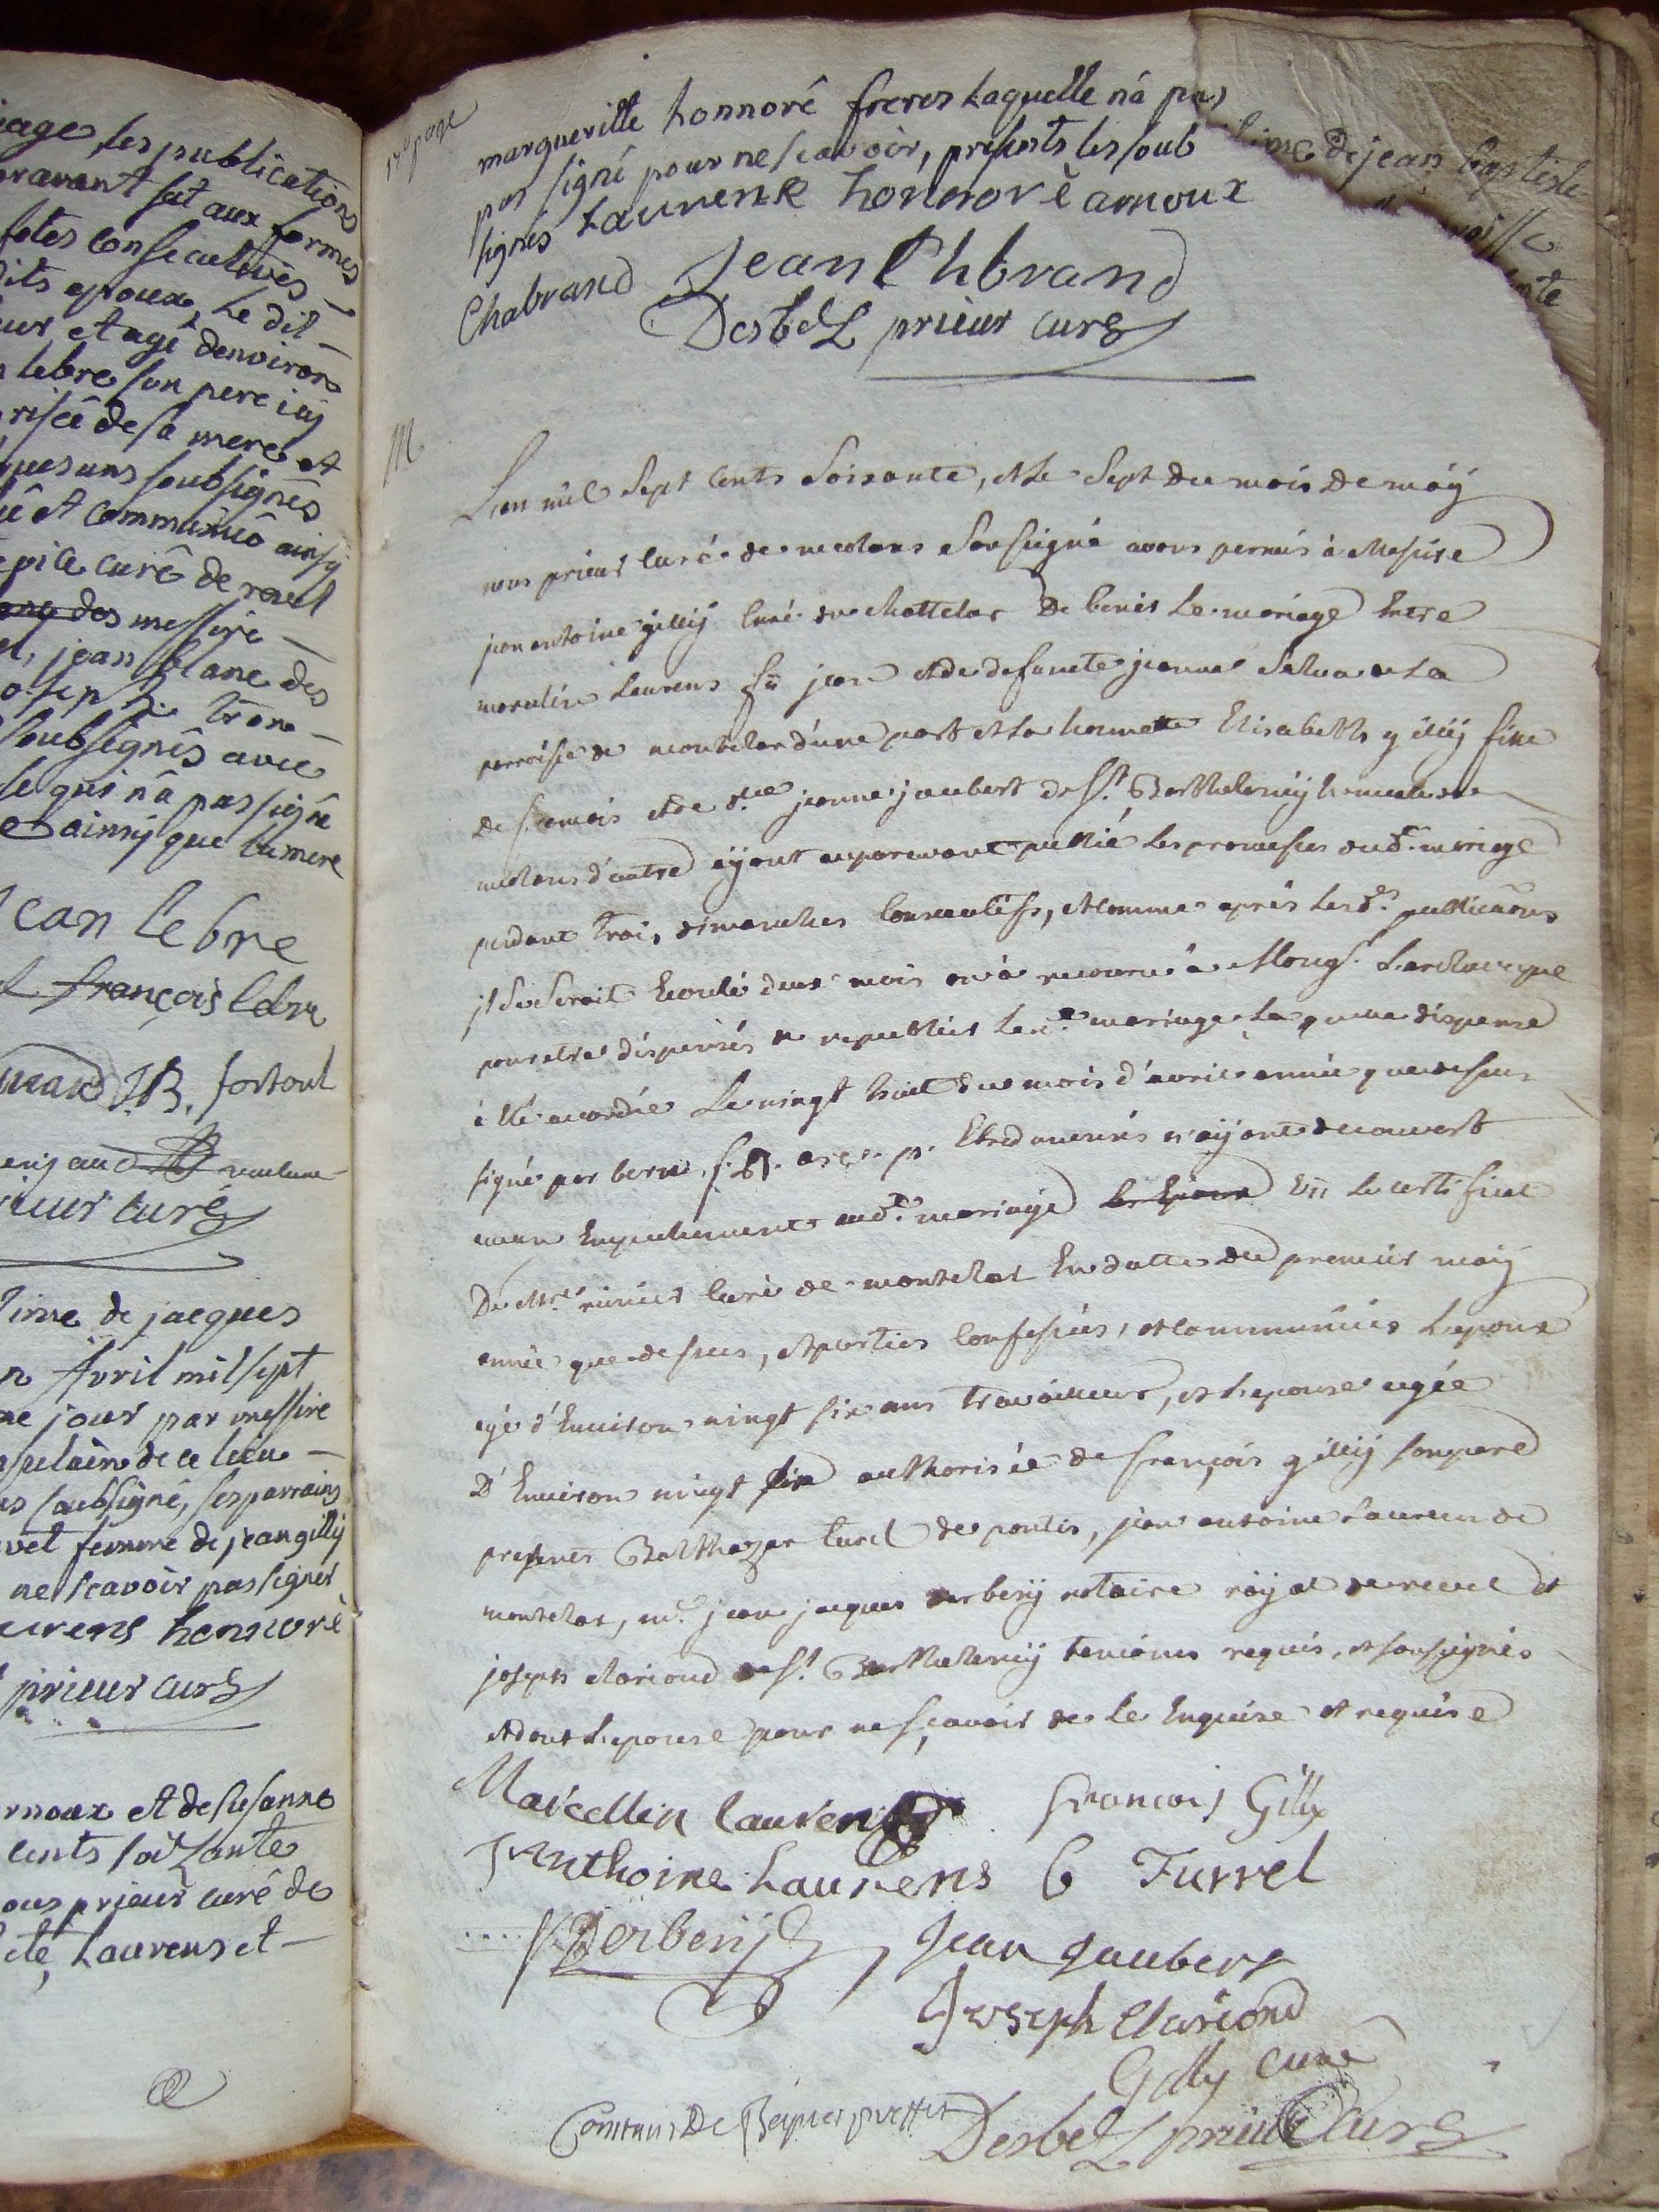 iage, les publications
aravant fait aux formes
fetes consecutives
dits epoux, le dit
eur et agé denviron
lebre son pere icy
risée de sa mere et
soubsignés
et communié ainsy
curé de revel
des messire
jean blanc des
joseph tron
soubsignés avec
le qui nâ pas signé
ainsy que la mere
jean lebre
françois lebre
J B. fortoul
rieur curé
time de jacques
n Avril mil sept
me jour par messire
de ce lieu
us soubsigné, ses parrains
vet femme de jean gilly
ne scavoir pas signer
aurens honnoré
prieur curé
rnoux et de susanne
cents soixante
ous prieur curé de
eté, Laurens et
page
margueritte honnoré freres Laquelle nâ pas
pas signé pour ne scavoir, presents les soub
signés Laurens honnoré arnoux
Chabrand Jean Chbrand
Derbez prieur curé
time de jean baptiste
M
L'an mil Sept cents Soixante, et le Sept du mois de may
nous prieur curé de meolans Sousigné avons permis à Messire
jean antoine gilly Curé du chattelar De benir Le mariage Entre
marcelin Laurens fii jean et de defuncte jeanne Salva de La
parroisse de montclar d'une part et la honnette Elisabeth gilly fille
De francois et de jeanne jaubert de St. Barthelemy hameau de
meolans d'autre ayant auparavant publié les promesses dud. mariage
pendant trois dimanches Consecutifs, et comme après lesd. publications
il Se Seroit Ecoulé deux mois on à recouru à Mong. L'archeveque
pour etre dispensés de republier led. mariage La quelle dispense
à Eté accordée Le vingt huit du mois d'avril année que dessus
signé par bern. f. arc. p. Ebredunensis n'ayant decouvert
aucun Empechement aud. mariage Vii le certificat
De Mre. curé de montclar En datte du premier may
année que dessus, et parties Confessées, et communiées L'epoux
agé d'Environ vingt six ans travailleur, et L'epouse agée
D'Environ vingt six authorisée de françois gilly son pere
presents Balthazar turel de pontis, jean antoine Laurens de
montclar, me. jean jacques derbesy notaire royal de revel et
joseph clariond de St. Barthelemy temoins requis, et sousignés
et dont L'epouse pour ne sçavoir de Ce Enquise et requise
Marcellin laurens françois Gilly
J Anthoine Laurens B Turrel
Derbesy Jean Jaubert
Joseph Clariond
Gilly curé
Derbez prieur Curé